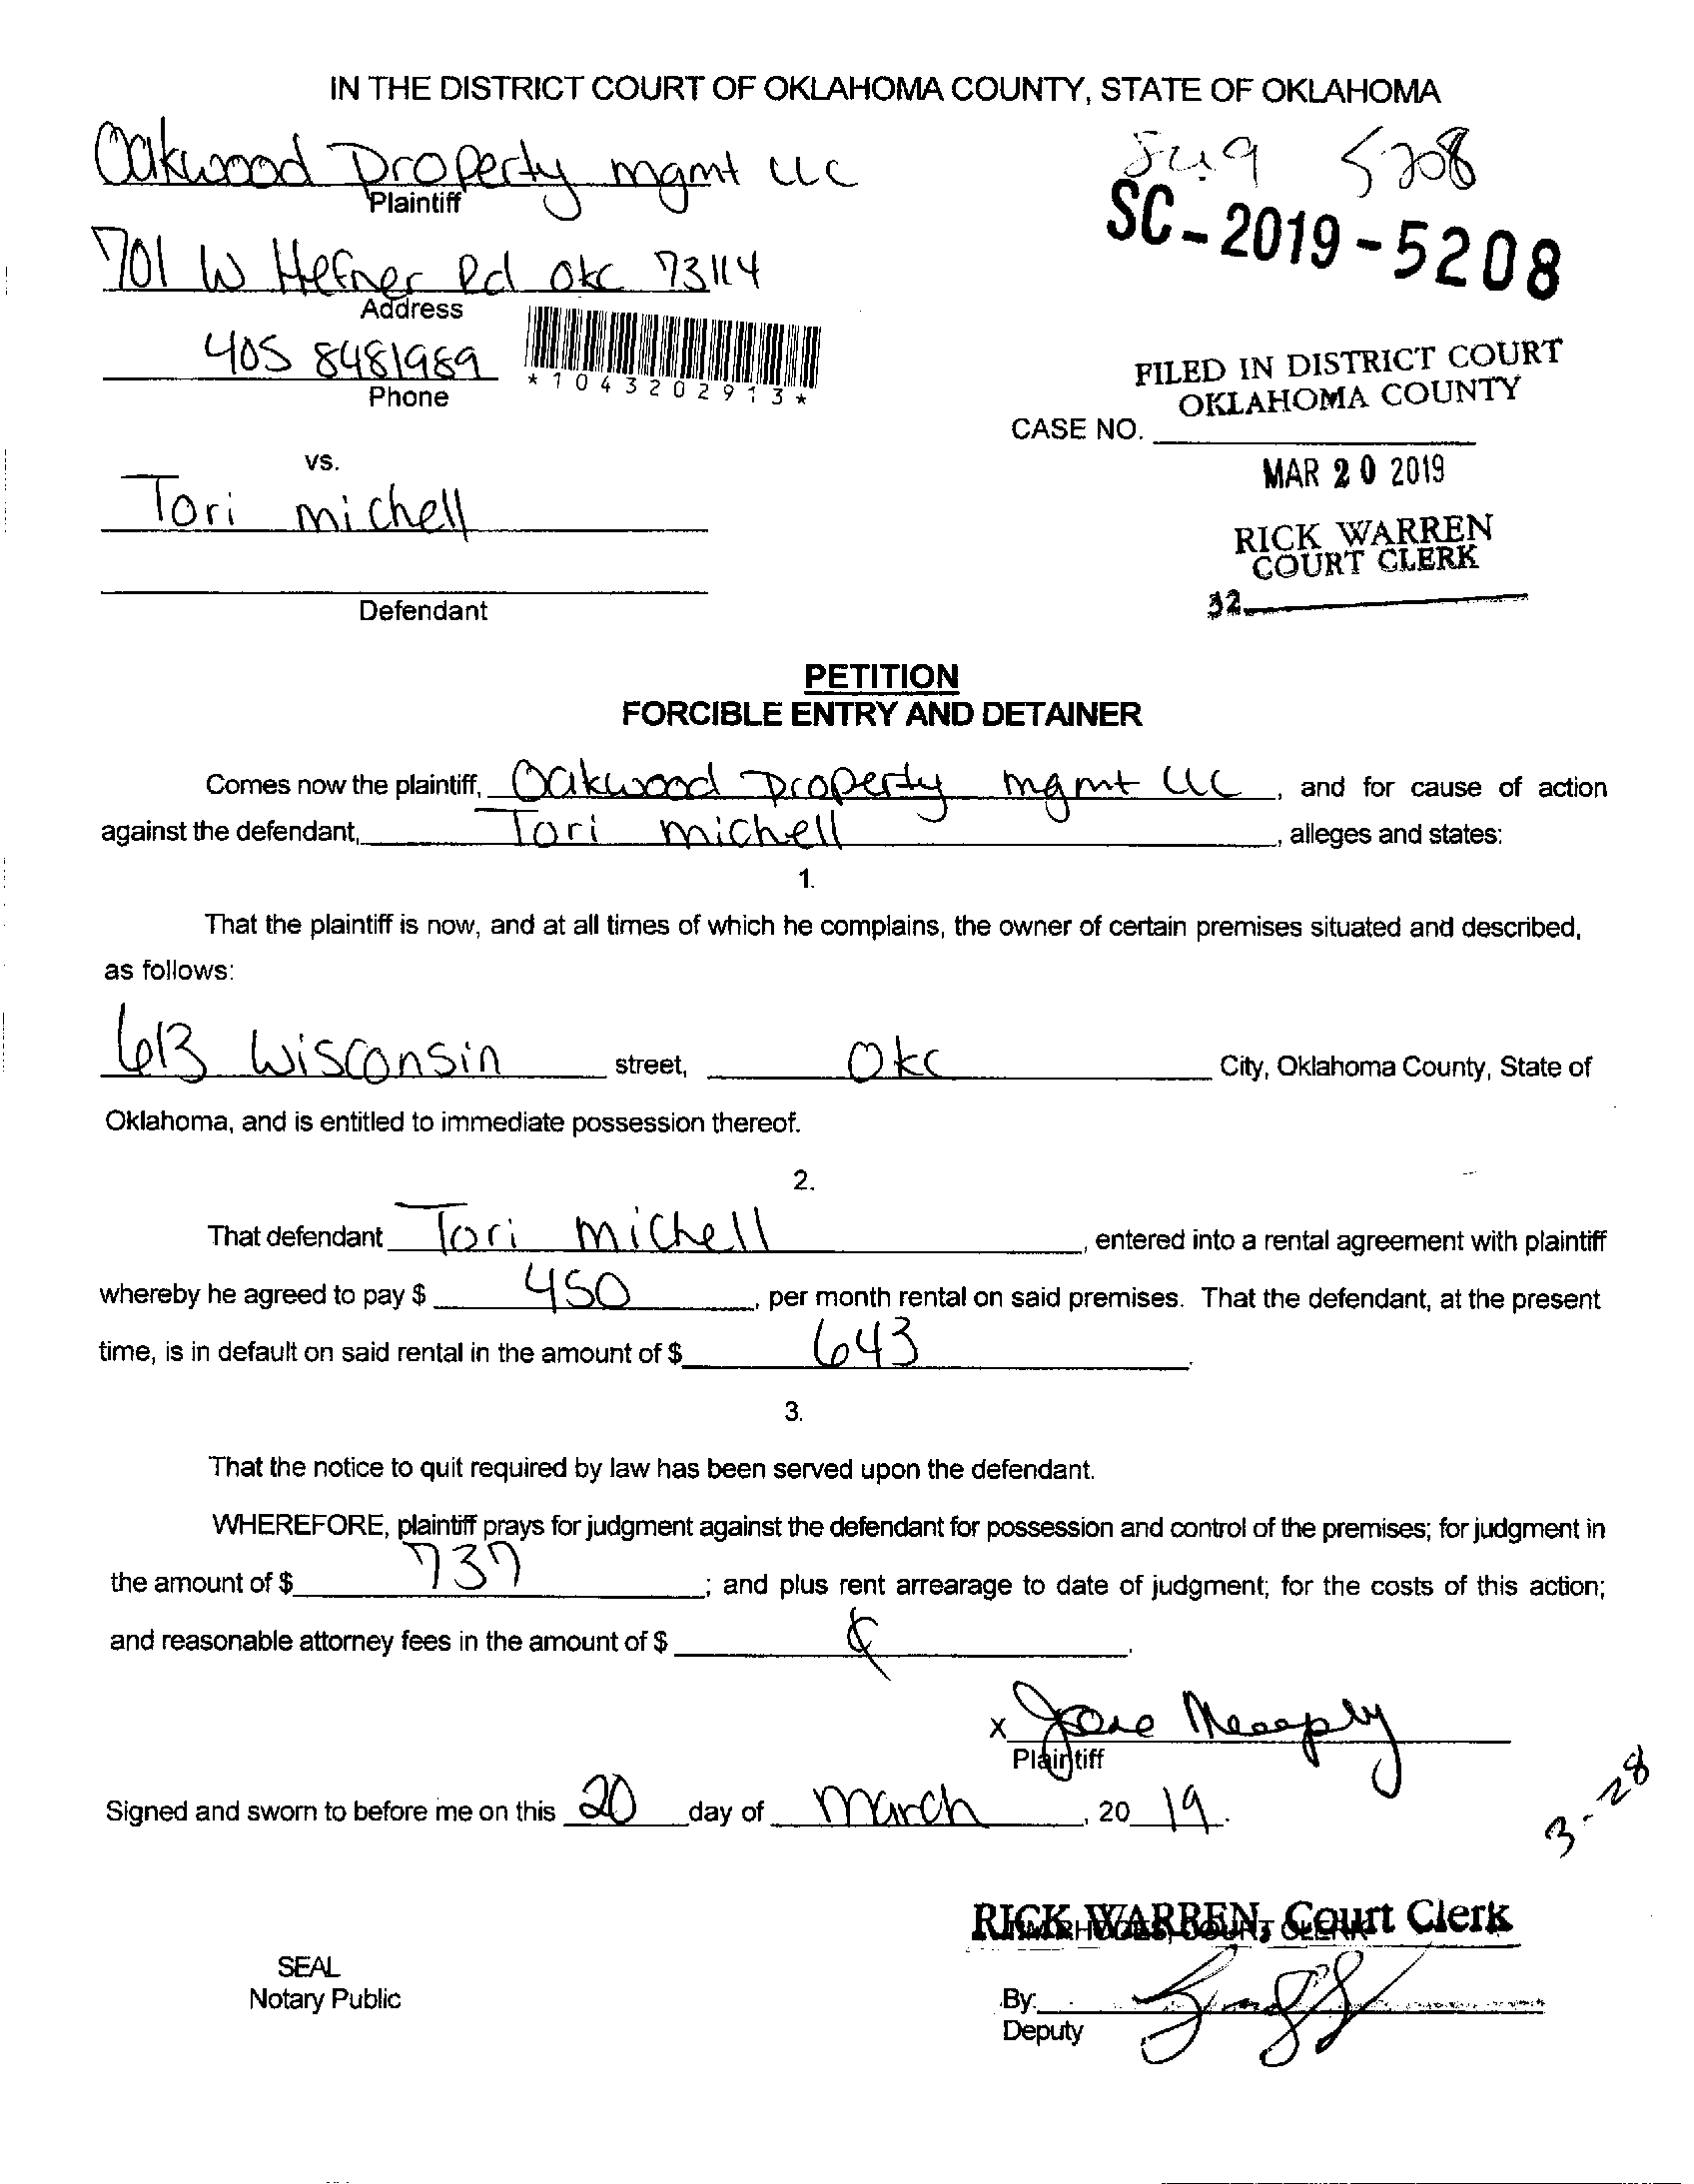 IN THE DISTRICT COURT OF OKLAHOMA COUNTY, STATE OF OKLAHOMA
Oakwood Property mgmt LLC
Plaintiff
5208
SC-2019-5208
701 W Hefner Rd Okc 73114
Address
405 8481989
Phone
*1043202913*
FILED IN DISTRICT COURT
OKLAHOMA COUNTY
CASE NO.
MAR 20 2019
vs.
Tori michell
RICK WARREN
COURT CLERK
32
Defendant
PETITION
FORCIBLE ENTRY AND DETAINER
Comes now the plaintiff, Oakwood Property mgmt LLC, and for cause of action
against the defendant, Tori michell, alleges and states:
1.
That the plaintiff is now, and at all times of which he complains, the owner of certain premises situated and described,
as follows:
613 Wisconsin street, Okc City, Oklahoma County, State of
Oklahoma, and is entitled to immediate possession thereof.
2.
That defendant Tori michell, entered into a rental agreement with plaintiff
whereby he agreed to pay $ 450, per month rental on said premises. That the defendant, at the present
time, is in default on said rental in the amount of $ 643.
3.
That the notice to quit required by law has been served upon the defendant.
WHEREFORE, plaintiff prays for judgment against the defendant for possession and control of the premises; for judgment in
the amount of $ 737; and plus rent arrearage to date of judgment; for the costs of this action;
and reasonable attorney fees in the amount of $ .
x
Plaintiff
Signed and sworn to before me on this 20 day of March, 20 19.
3-28
RICK WARREN, Court Clerk
SEAL
Notary Public
By:
Deputy